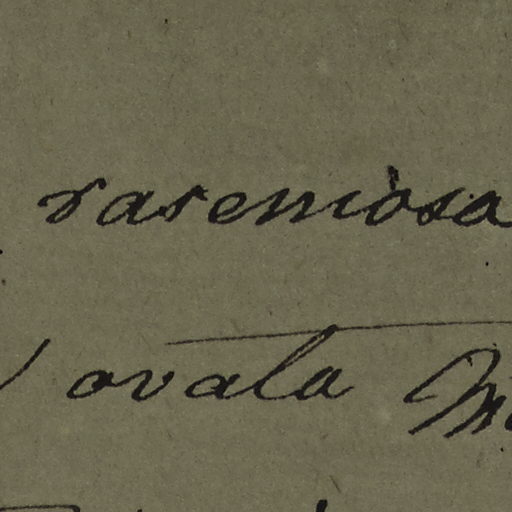 racemosa
ovata